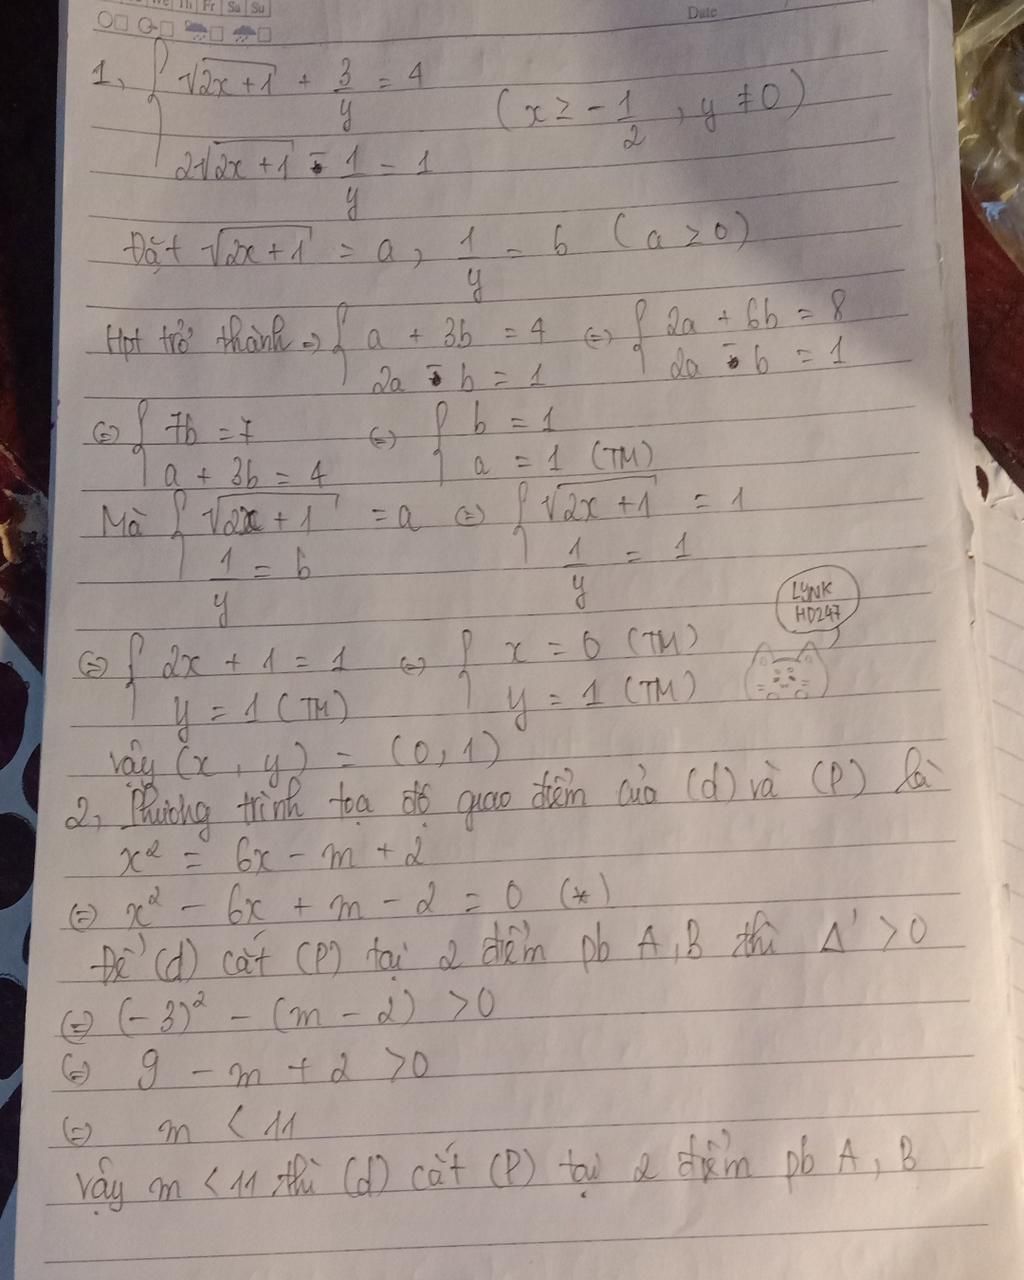 Th Fr Sa Su
Date
1, { √2x+1 + 3/y = 4
(x ≥ -1/2, y ≠ 0)
2√2x+1 - 1/y = 1
Đặt √2x+1 = a, 1/y = b (a ≥ 0)
Hpt trở thành => { a + 3b = 4 <=> { 2a + 6b = 8
2a - b = 1 2a - b = 1
<=> { 7b = 7 <=> { b = 1
a + 3b = 4 a = 1 (TM)
Mà { √2x+1 = a <=> { √2x+1 = 1
1/y = b 1/y = 1
LYNK
HD247
<=> { 2x + 1 = 1 <=> { x = 0 (TM)
y = 1 (TM) y = 1 (TM)
vậy (x, y) = (0, 1)
2, Phương trình tọa độ giao điểm của (d) và (P) là
x² = 6x - m + 2
<=> x² - 6x + m - 2 = 0 (*)
Để (d) cắt (P) tại 2 điểm pb A, B thì Δ' > 0
<=> (-3)² - (m - 2) > 0
<=> 9 - m + 2 > 0
<=> m < 11
vậy m < 11 thì (d) cắt (P) tại 2 điểm pb A, B